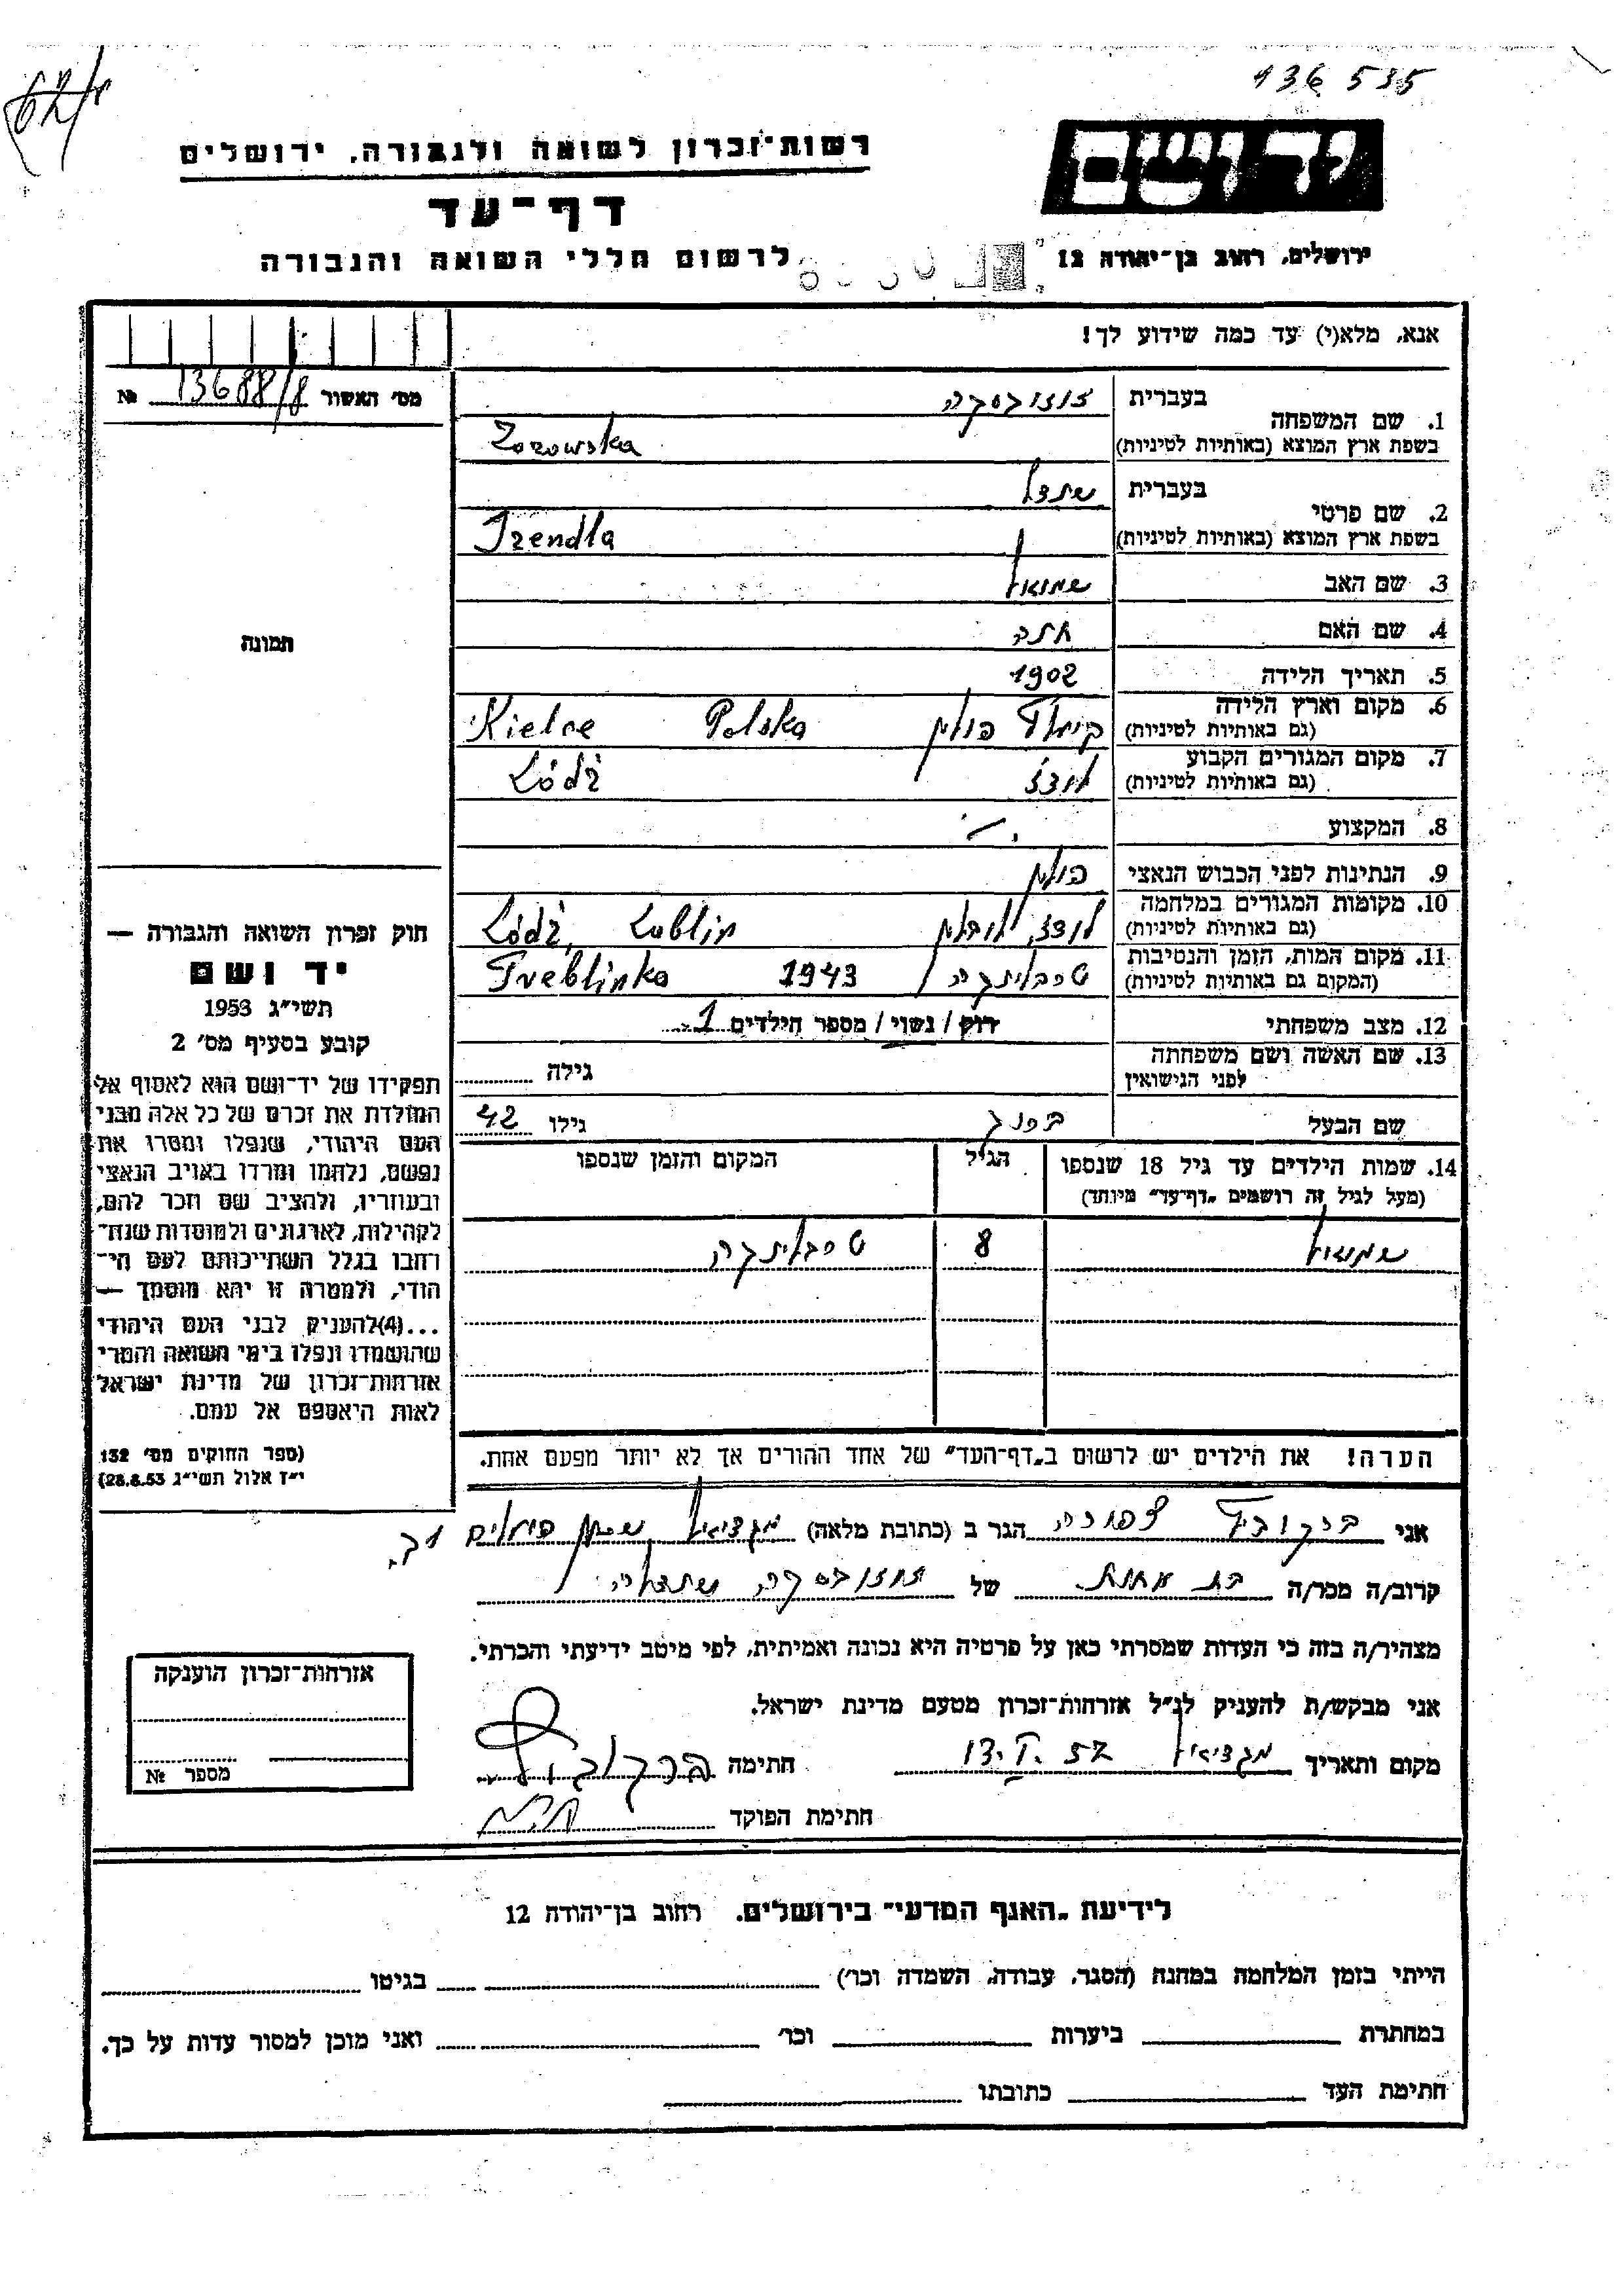 136 535
רשות־זכרון לשואה ולגבורה, ירושלים
יד ושם
דף־עד
לרשום חללי השואה והגבורה
ירושלים, רחוב בן־יהודה 12
אנא, מלא(י) עד כמה שידוע לך!
מס׳ האשור 13688/8 №
1. שם המשפחה
בעברית
בשפת ארץ המוצא (באותיות לטיניות) Zozowska
2. שם פרטי
בעברית
בשפת ארץ המוצא (באותיות לטיניות)
3. שם האב שמואל
4. שם האם חנה
5. תאריך הלידה 1902
6. מקום וארץ הלידה
(גם באותיות לטיניות) קילצ פולין Polska Kielce
7. מקום המגורים הקבוע
(גם באותיות לטיניות) לודז Łódź
8. המקצוע
9. הנתינות לפני הכבוש הנאצי פולין
10. מקומות המגורים במלחמה
(גם באותיות לטיניות) לודז, לובלין Łódź, Lublin
11. מקום המות, הזמן והנסיבות
(המקום גם באותיות לטיניות) טרבלינקה 1943 Treblinka
12. מצב משפחתי רוק / נשוי / מספר הילדים 1
13. שם האשה ושם משפחתה
לפני הנישואין גילה
שם הבעל גילו 42
14. שמות הילדים עד גיל 18 שנספו
(מעל לגיל זה רושמים „דף־עד” מיוחד) הגיל המקום והזמן שנספו
שמואל 8 טרבלינקה
הערה! את הילדים יש לרשום ב„דף־העד” של אחד ההורים אך לא יותר מפעם אחת.
תמונה
חוק זכרון השואה והגבורה —
יד ושם
תשי״ג 1953
קובע בסעיף מס׳ 2
תפקידו של יד־ושם הוא לאסוף אל
המולדת את זכרם של כל אלה מבני
העם היהודי, שנפלו ומסרו את
נפשם, נלחמו ומרדו באויב הנאצי
ובעוזריו, ולהציב שם וזכר להם,
לקהילות, לארגונים ולמוסדות שנח־
רחבו בגלל השתייכותם לעם הי־
הודי, ולמטרה זו יהא מוסמך —
...(4)להעניק לבני העם היהודי
שהושמדו ונפלו בימי השואה והמרי
אזרחות־זכרון של מדינת ישראל
לאות היאספם אל עמם.
(ספר החוקים מס׳ 132
י״ז אלול תשי״ג 28.8.53)
אני ברקוביץ צפורה הגר ב (כתובת מלאה) מגדיאל שכון פועלים
קרוב/ה מכר/ה בת אחות של
מצהיר/ה בזה כי העדות שמסרתי כאן על פרטיה היא נכונה ואמיתית, לפי מיטב ידיעתי והכרתי.
אני מבקש/ת להעניק לנ״ל אזרחות־זכרון מטעם מדינת ישראל.
מקום ותאריך מגדיאל חתימה ברקוביץ
חתימת הפוקד
אזרחות־זכרון הוענקה
מספר №
לידיעת „האגף המדעי” בירושלים, רחוב בן־יהודה 12
הייתי בזמן המלחמה במחנה (הסגר, עבודה, השמדה וכו׳) בגיטו
במחתרת ביערות וכו׳ ואני מוכן למסור עדות על כך.
חתימת העד כתובתו